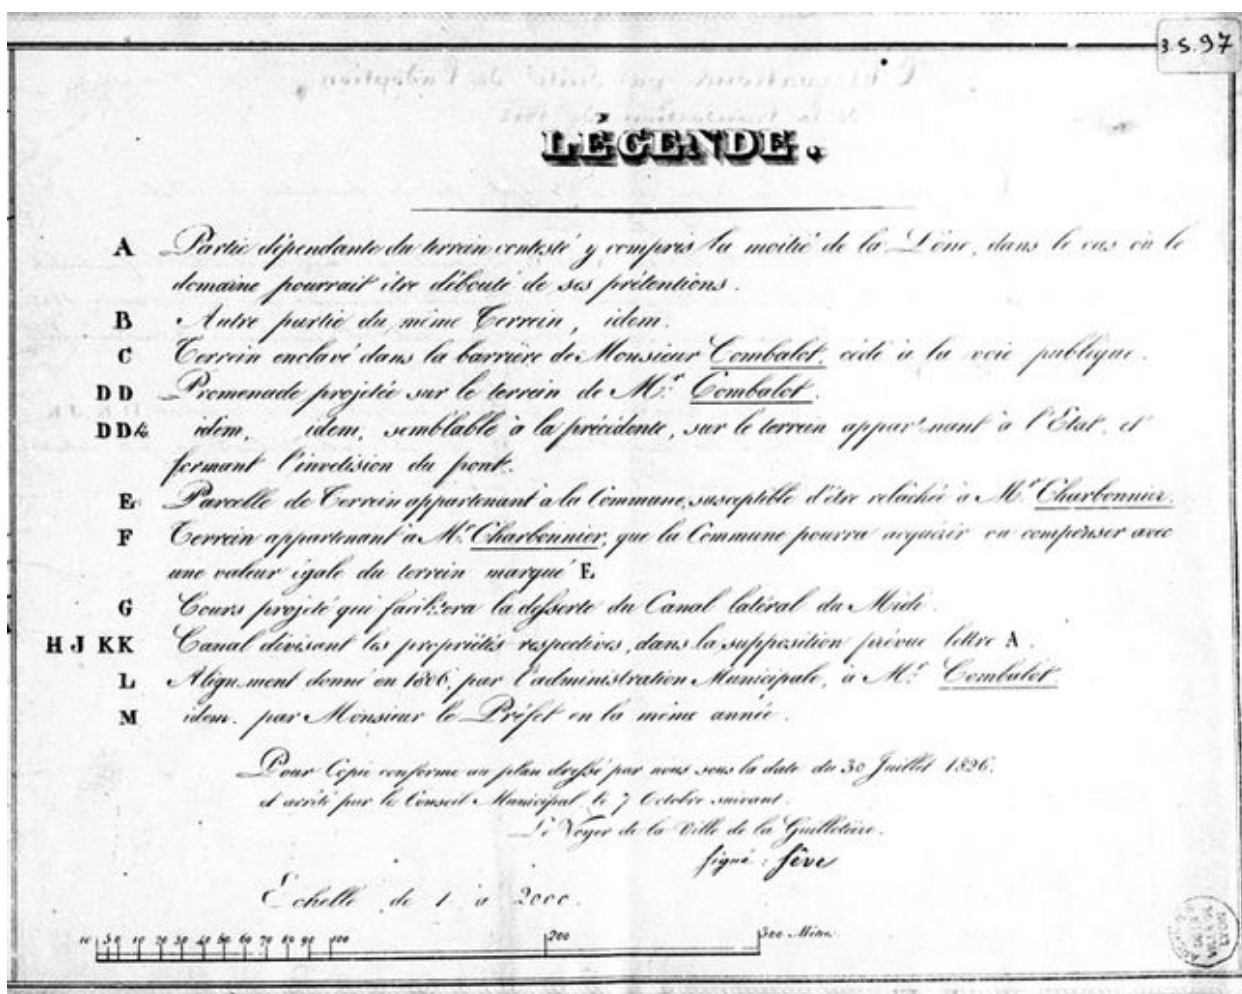 3.S.97
LÉGENDE.
A Partie dépendante du terrein contesté y compris la moitié de la Lône, dans le cas où le
domaine pourrait être débouté de ses prétentions.
B Autre partie du même Terrein, idem.
C Terrein enclavé dans la barrière de Monsieur Combalot, cédé à la voie publique.
DD Promenade projetée sur le terrein de Mr. Combalot.
DD idem, idem, semblable à la précédente, sur le terrein appartenant à l'Etat, et
formant l'invetision du pont.
E Parcelle de Terrein appartenant à la Commune, susceptible d'être relâchée à Mr. Charbonnier.
F Terrein appartenant à Mr. Charbonnier, que la Commune pourra acquérir ou compenser avec
une valeur égale du terrein marqué E.
G Cours projeté qui facilitera la desserte du Canal latéral du Midi.
H J KK Canal divisant les propriétés respectives, dans la supposition prévue lettre A.
L Alignement donné en 1806, par l'administration Municipale, à Mr. Combalot.
M idem. par Monsieur le Préfet en la même année.
Pour Copie conforme au plan dressé par nous sous la date du 30 Juillet 1826.
et arrêté par le Conseil Municipal, le 7 Octobre suivant.
Le Voyer de la Ville de la Guillotière.
signé : Sève
Echelle de 1 à 2000.
10 5 0 10 20 30 40 50 60 70 80 90 100 200 300 Mètres